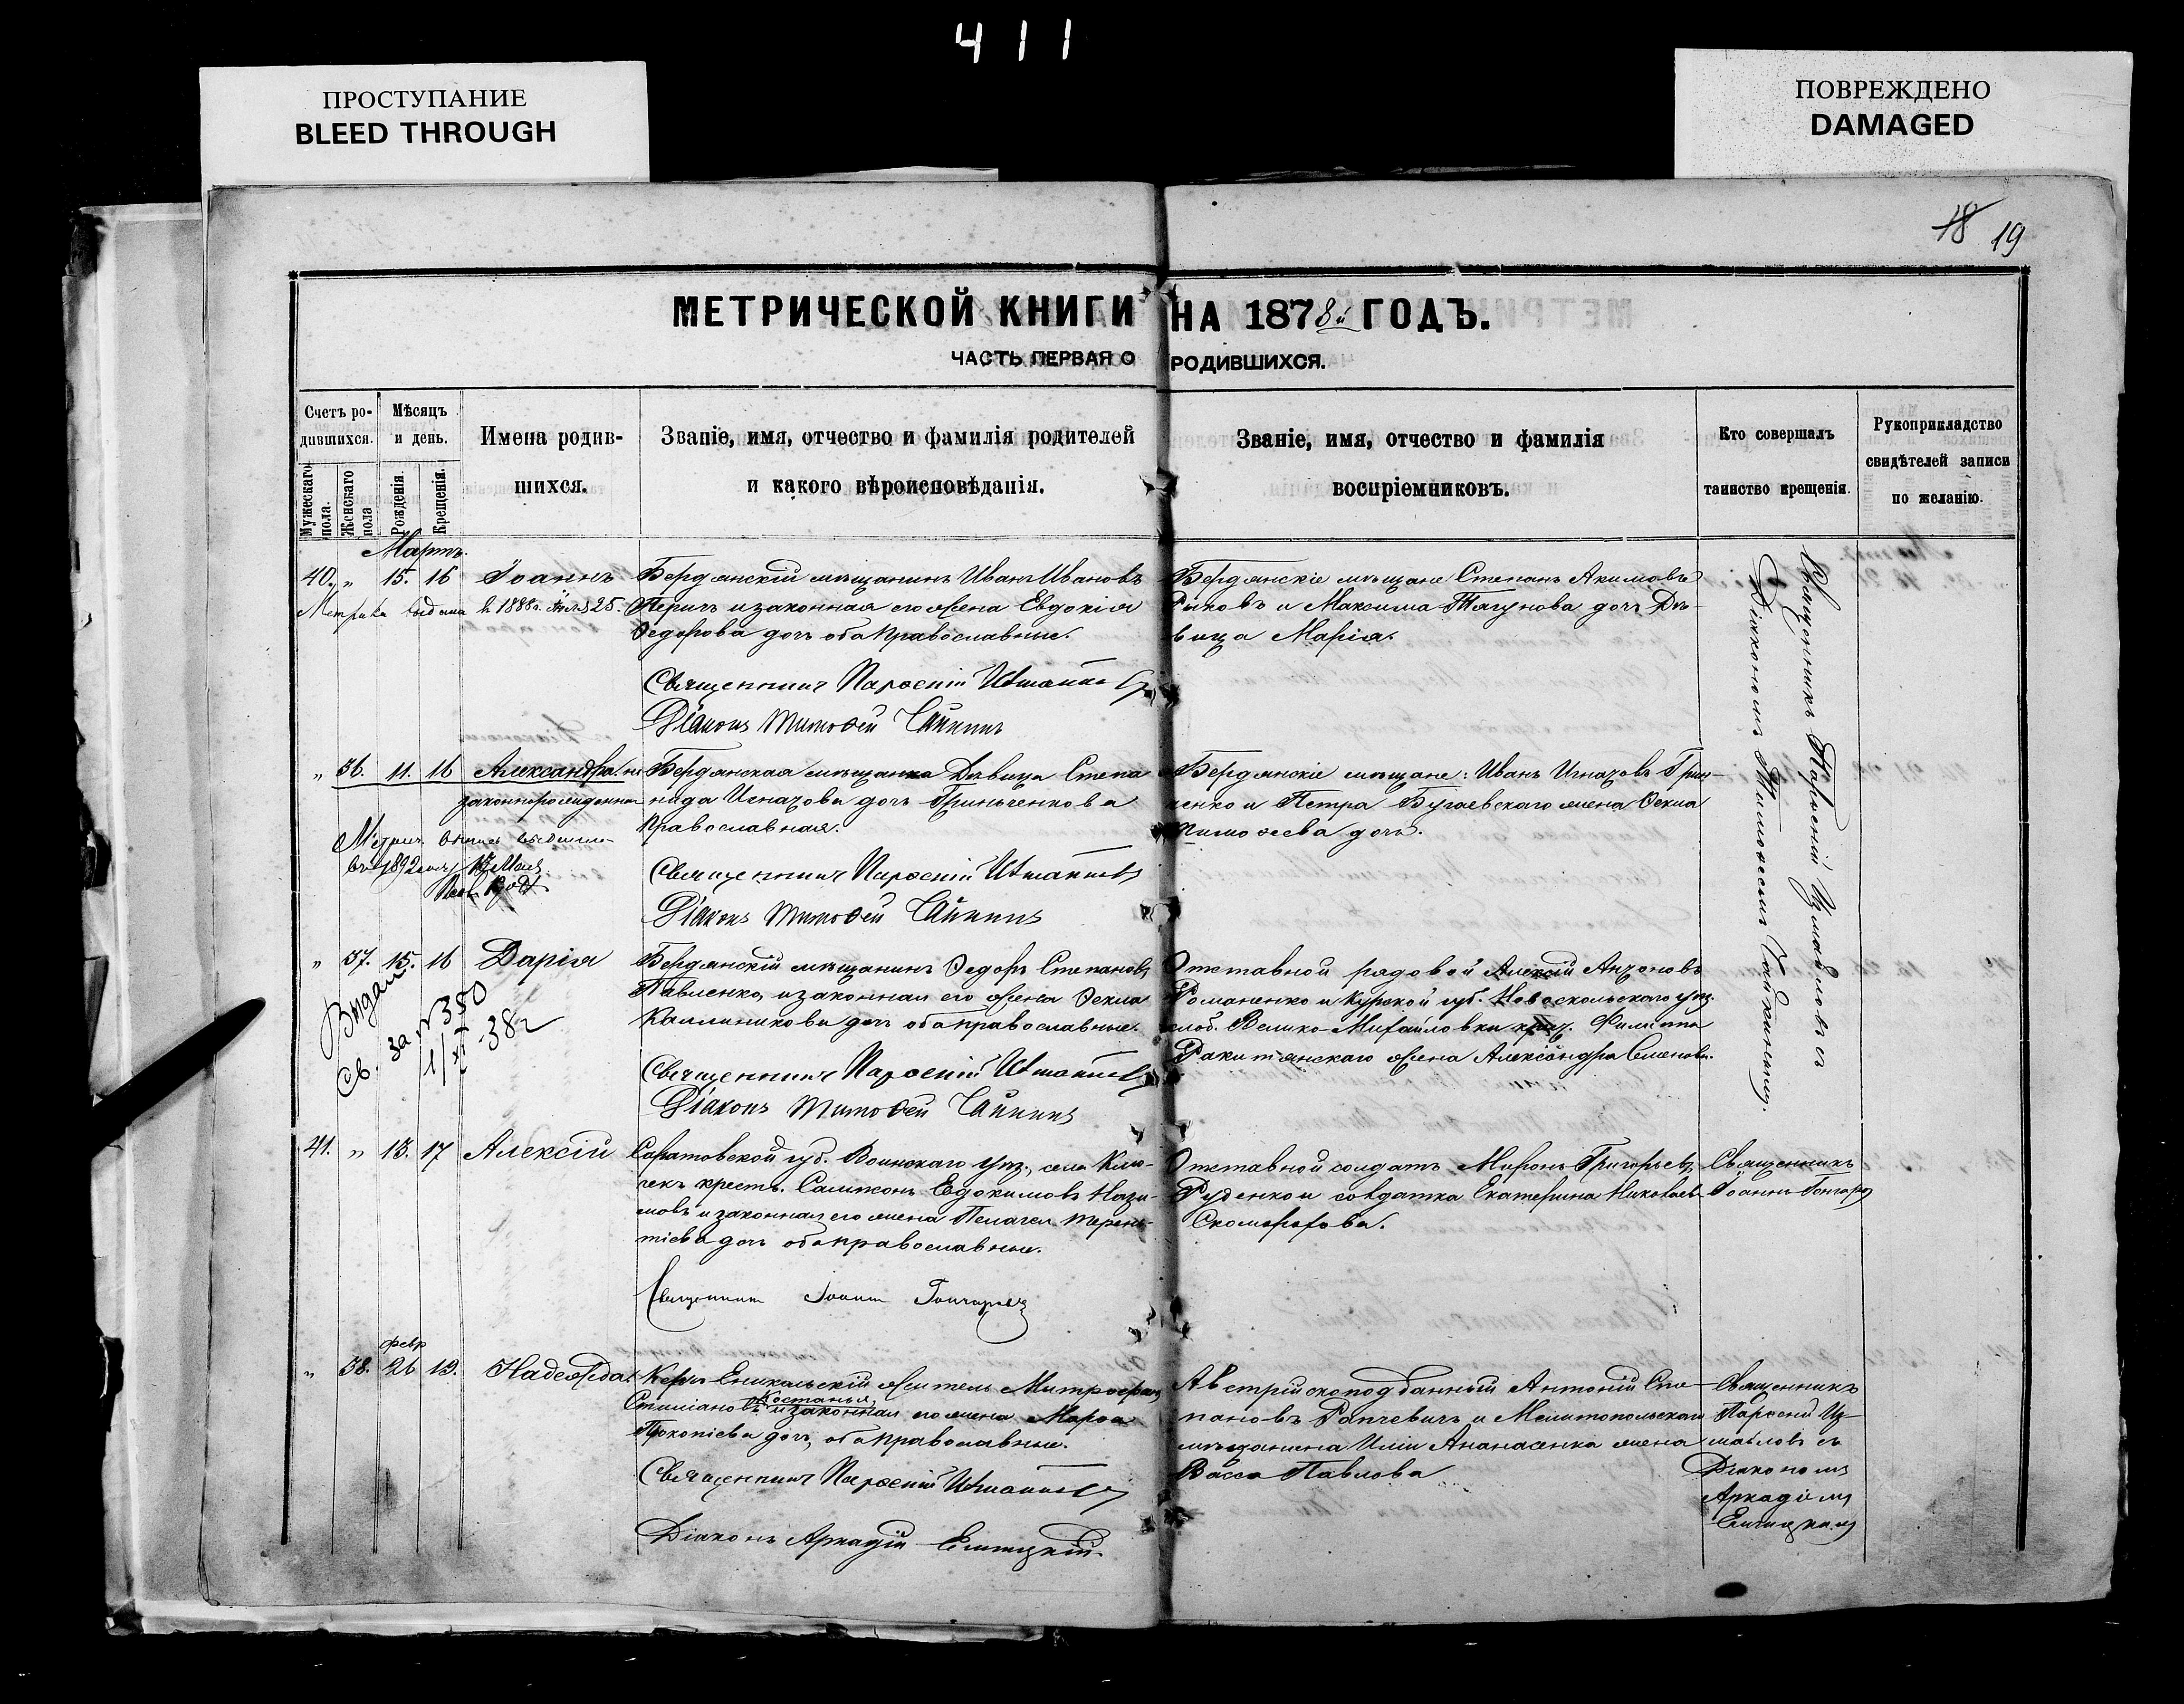 411
ПРОСТУПАНИЕ
BLEED THROUGH
ПОВРЕЖДЕНО
DAMAGED
18 19
МЕТРИЧЕСКОЙ КНИГИ НА 1878й ГОДЪ.
ЧАСТЬ ПЕРВАЯ О РОДИВШИХСЯ.
Счетъ ро-
дившихся.
Мужескаго пола.
Женскаго пола
Мѣсяцъ
и день.
Рожденія.
Крещенія.
Имена родив-
шихся.
Званіе, имя, отчество и фамилія родителей
и какого вѣроисповѣданія.
Званіе, имя, отчество и фамилія
воспріемниковъ.
Кто совершалъ
таинство крещенія.
Рукоприкладство
свидѣтелей записи
по желанію.
Мартъ.
40. „ 15. 16 Іоаннъ
Метрика выдана в 1888г. 25.
Бердянскій мѣщанинъ Иванъ Ивановъ
и законная его жена Евдокія
Федорова дочь оба православные.
Священникъ Парѳеній
Діаконъ Тимоѳей Чайкинъ
Бердянскіе мѣщане Степанъ Акимовъ
Рыковъ и Максима Тягунова дочь Дѣ-
вица Марія.
Священникъ Парѳеній Измаиловъ съ
Діакономъ Тимоѳеемъ Чайкинымъ.
„ 36. 11. 16 Александра не
законнорожденная
Метрич. выпись
въ 1892 году 17 Мая
Бердянская мѣщанка Дѣвица Степа
нида Игнатова дочь Гринченкова
Православная.
Священникъ Парѳеній
Діаконъ Тимоѳей Чайкинъ
Бердянскіе мѣщане: Иванъ Игнатовъ Грин-
ченко и Петра Бугаевскаго жена Ѳекла
Тимоѳеева дочь.
„ 37. 15. 16 Дарія
Св. за № 380
Бердянскій мѣщанинъ Ѳедоръ Степановъ
Павленко, и законная его жена Ѳекла
Каллиникова дочь оба православные.
Священникъ Парѳеній
Діаконъ Тимоѳей Чайкинъ
Отставной рядовой Алексій
Романенко и Курской губ. Новоскольскаго уѣз.
слоб. Велико-Михайловки крест. Филиппа
Ракитянскаго жена Александра Семенова.
41. „ 13. 17 Алексій
Саратовской губ. уѣз., села Клю-
чекъ крест. Евдокимовъ
и законная его жена Пелагея Терен-
тіева дочь оба православные.
Священникъ Іоаннъ Гончаровъ
Отставной солдатъ Миронъ Григорьевъ
Руденко и солдатка Екатерина Николаева
Скоморохова.
Священникъ
Іоаннъ Гончаровъ
февр
„ 38. 26 19. Надежда
Керчь-Еникальскій житель Митрофанъ
и законная его жена Марѳа
Прокопіева дочь, оба православные.
Священникъ Парѳеній
Діаконъ Аркадій Елинецкій
Австрійскоподданный Антоній Сте-
пановъ Рапчевичъ и Мелитопольскаго
мѣщанина Иліи Ананасенка жена
Васса Павлова
Священникъ
Парѳеній Из-
маиловъ съ
Діакономъ
Аркадіемъ